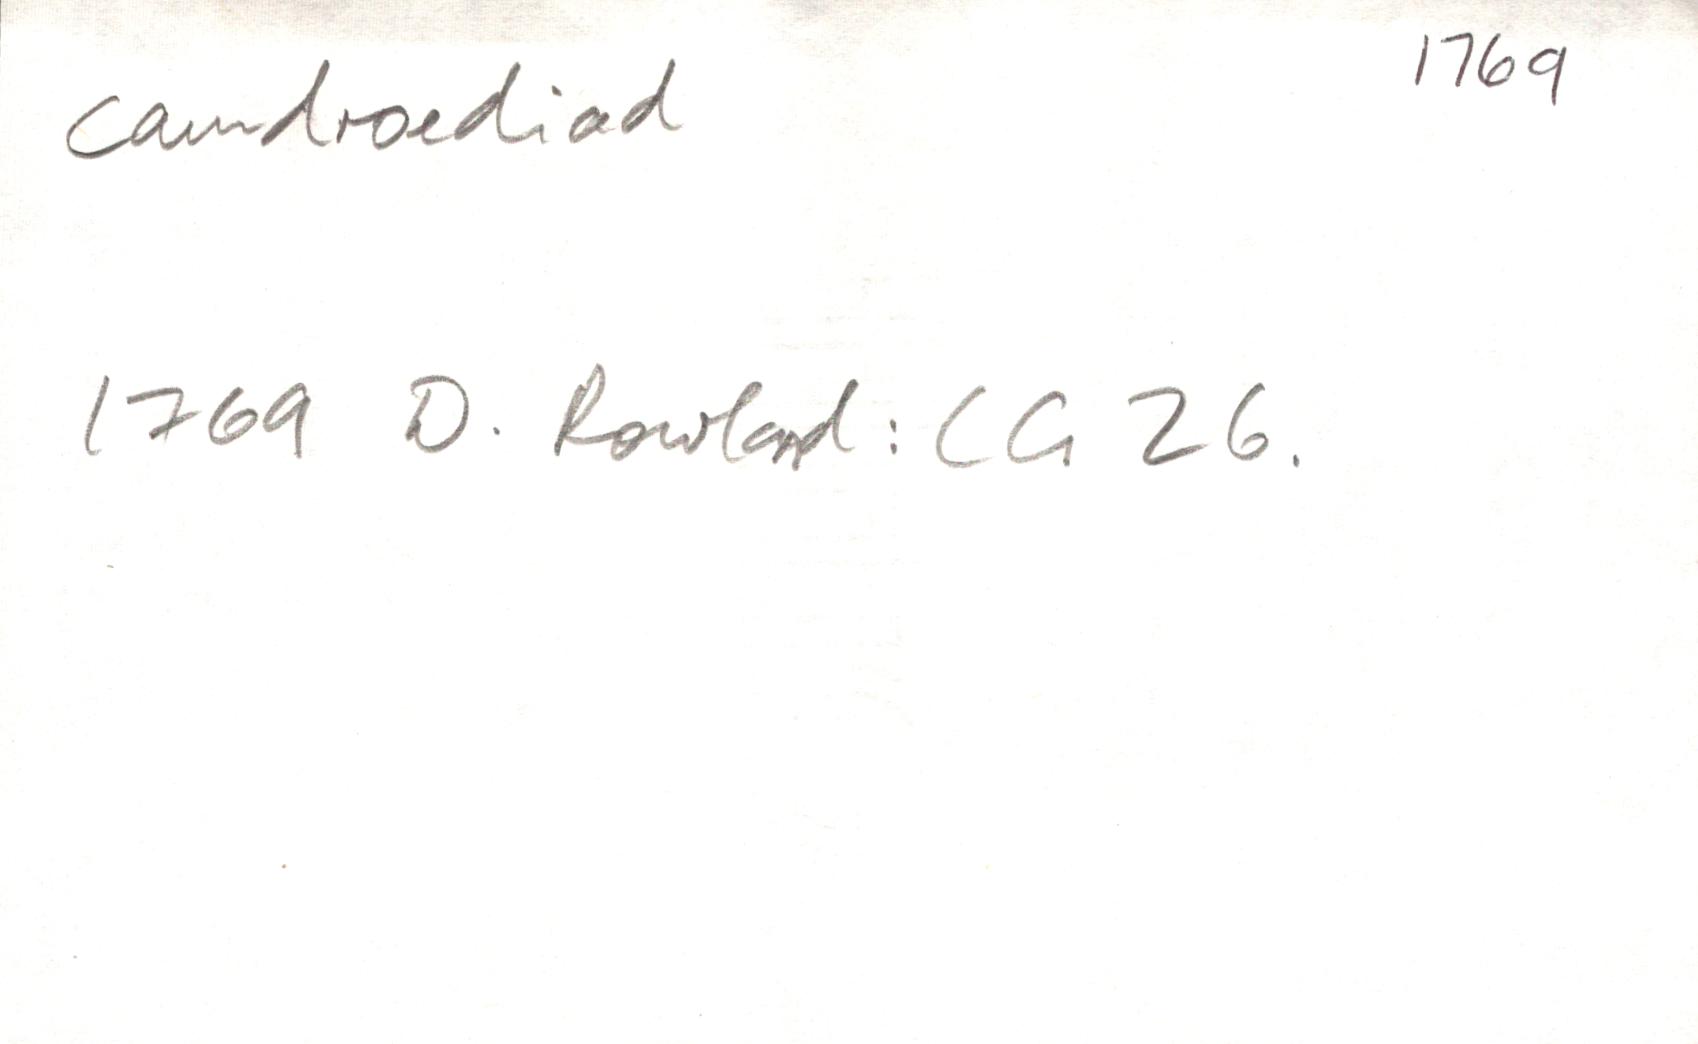 camdroediad 1769
1769 D. Rowland: CG 26.